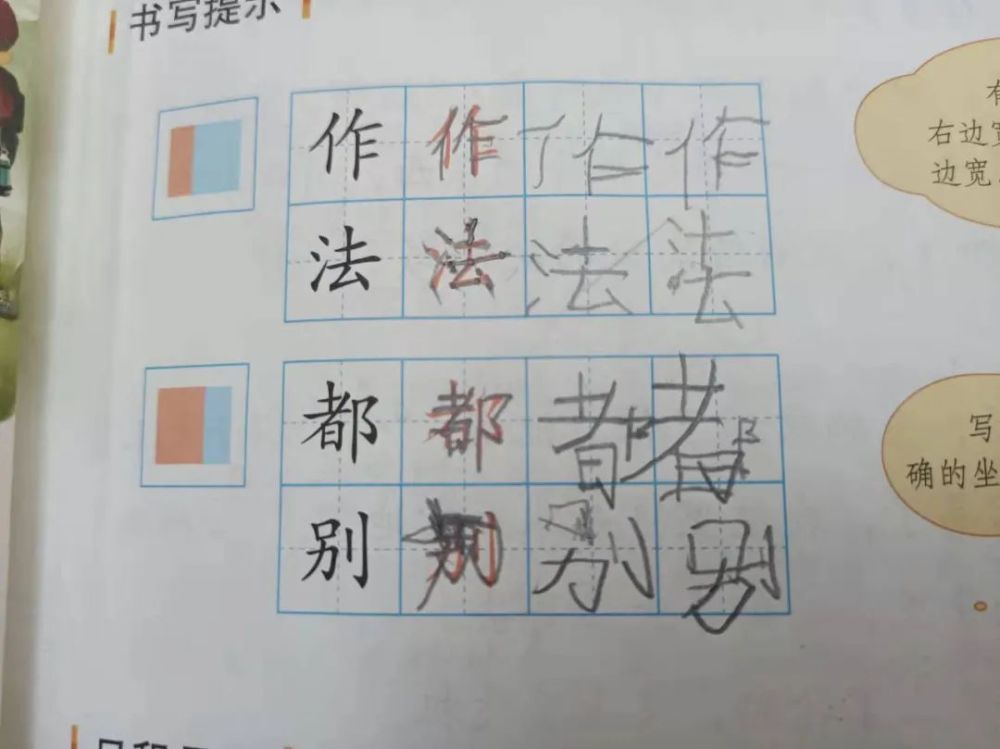 书写提示
作 作 作 作
右边
边宽
法 法 法 法
都 都 都 都
写
确的坐
别 别 别 别